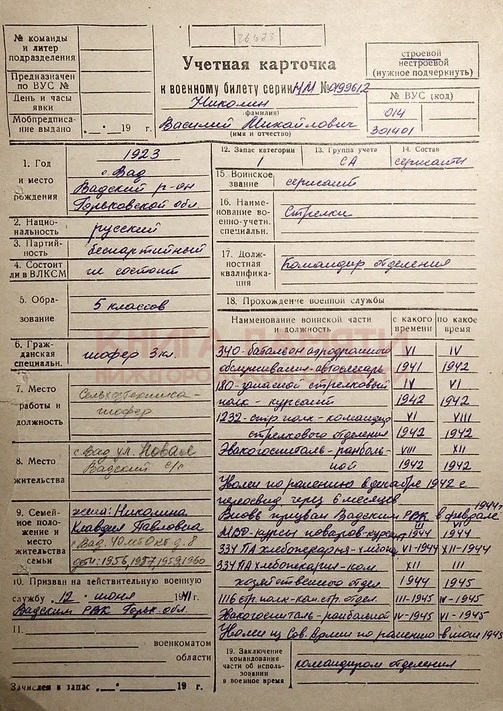 № команды
и литер
подразделения
Предназначен
по ВУС №
День и часы
явки
Мобпредписание
выдано „ . “ . 19 г.
Учетная карточка
к военному билету серии НМ №
Николин
(фамилия)
Василий Михайлович
(имя и отчество)
строевой
нестроевой
(нужное подчеркнуть)
№ ВУС (код)
014
301401
1. Год
и место
рождения
1923
с. Вад
Вадский р-он
Горьковской обл.
2. Национальность
русский
3. Партийность
беспартийный
4. Состоит
ли в ВЛКСМ
не состоит
5. Образование
5 классов
6. Гражданская
специальн.
шофер 3 кл.
7. Место
работы и
должность
Сельхозтехника -
шофер
8. Место
жительства
с. Вад ул. Новая
Вадский с/с
9. Семейное
положение
и место
жительства
семьи
жена: Николина
Клавдия Павловна
с. Вад.
дети: 1956, 1957, 1959, 1960
10. Призван на действительную военную
службу „12“ июня 1941 г.
Вадским РВК Горьк. обл.
11.
военкоматом
области
Зачислен в запас „ . “ 19 г.
12. Запас категории
1
13. Группа учета
СА
14. Состав
сержанты
15. Воинское
звание
сержант
16. Наименование
военно-учетн.
специальн.
Стрелки
17. Должностная
квалификация
Командир отделения
18. Прохождение военной службы
Наименование воинской части
и должность
с какого
времени
по какое
время
340 батальон аэродромного VI IV
обслуживания - автослесарь 1941 1942
180 запасной стрелковый IV VI
полк - курсант 1942 1942
1232 стр. полк - командир VI VIII
стрелкового отделения 1942 1942
Эвакогоспиталь - ранбольной VIII XII
1942 1942
Уволен по ранению в декабре 1942 с
переосвид. через 6 месяцев
Вновь призван Вадским РВК в феврале 1944 г.
курсы поваров - курсант 1944 1944
334 ПА хлебопекарня - VI-1944 XII-1944
334 ПА хлебопекарня - ком. XII III
хозяйственного отдел. 1944 1945
1116 стр. полк - ком. стр. отдел III-1945 IV-1945
Эвакогоспиталь - ранбольной IV-1945 VI-1945
Уволен из Сов. Армии по ранению в июн 1945
19. Заключение
командования
части об использовании
в военное время
командиром отделения
КНИГА ПАМЯТИ